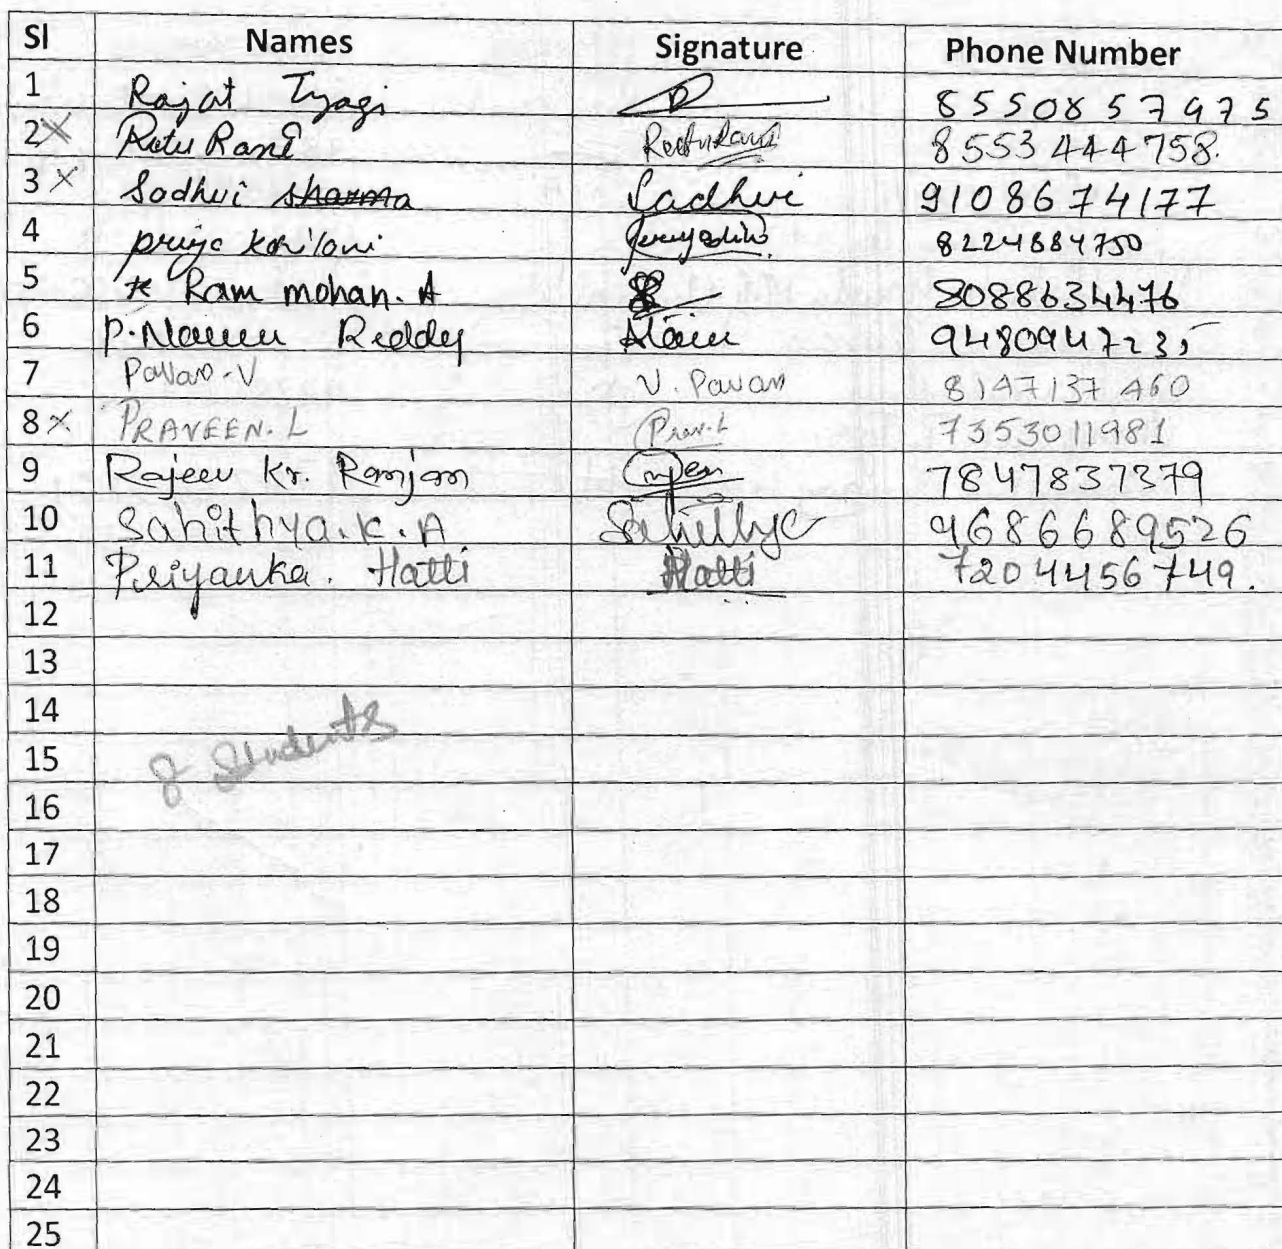 Sl Names Signature Phone Number
1 Rajat Tyagi 8550857975
2 X Ritu Rani Reetu Rani 8553444758.
3 X Sadhvi sharma Sadhvi 9108674177
4 priya 8224884750
5 * Ram mohan. A 8088634476
6 P. Naveen Reddy
7 Pavan - V V. Pavan 8147137460
8 X PRAVEEN. L Prav. L 7353011981
9 Rajeev Kr. Ranjan 7847837379
10 Sahithya. K. A Sahithya 9686689526
11 Priyanka. Hatti Hatti 7204456749.
12
13
14
8 Students
15
16
17
18
19
20
21
22
23
24
25